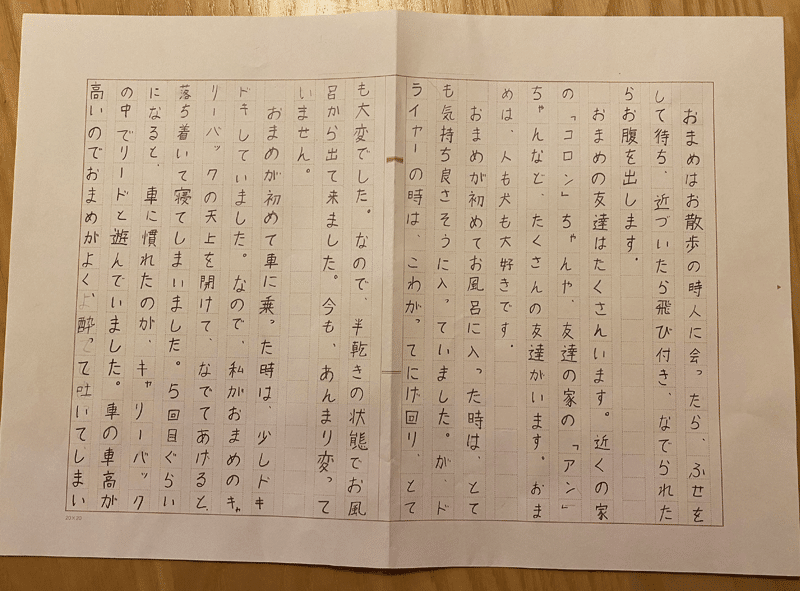 おまめはお散歩の時人に会ったら、ふせを
して待ち、近づいたら飛び付き、なでられた
らお腹を出します。
おまめの友達はたくさんいます。近くの家
の「コロン」ちゃんや、友達の家の「アン」
ちゃんなど、たくさんの友達がいます。おま
めは、人も犬も大好きです。
おまめが初めてお風呂に入った時は、とて
も気持ち良さそうに入っていました。が、ド
ライヤーの時は、こわがってにげ回り、とて
も大変でした。なので、半乾きの状態でお風
呂から出て来ました。今も、あんまり変って
いません。
おまめが初めて車に乗った時は、少しドキ
ドキしていました。なので、私がおまめのキャ
リーバックの天上を開けて、なでてあげると、
落ち着いて寝てしまいました。5回目ぐらい
になると、車に慣れたのが、キャリーバック
の中でリードと遊んでいました。車の車高が
高いのでおまめがよく、酔って吐いてしまい
20×20